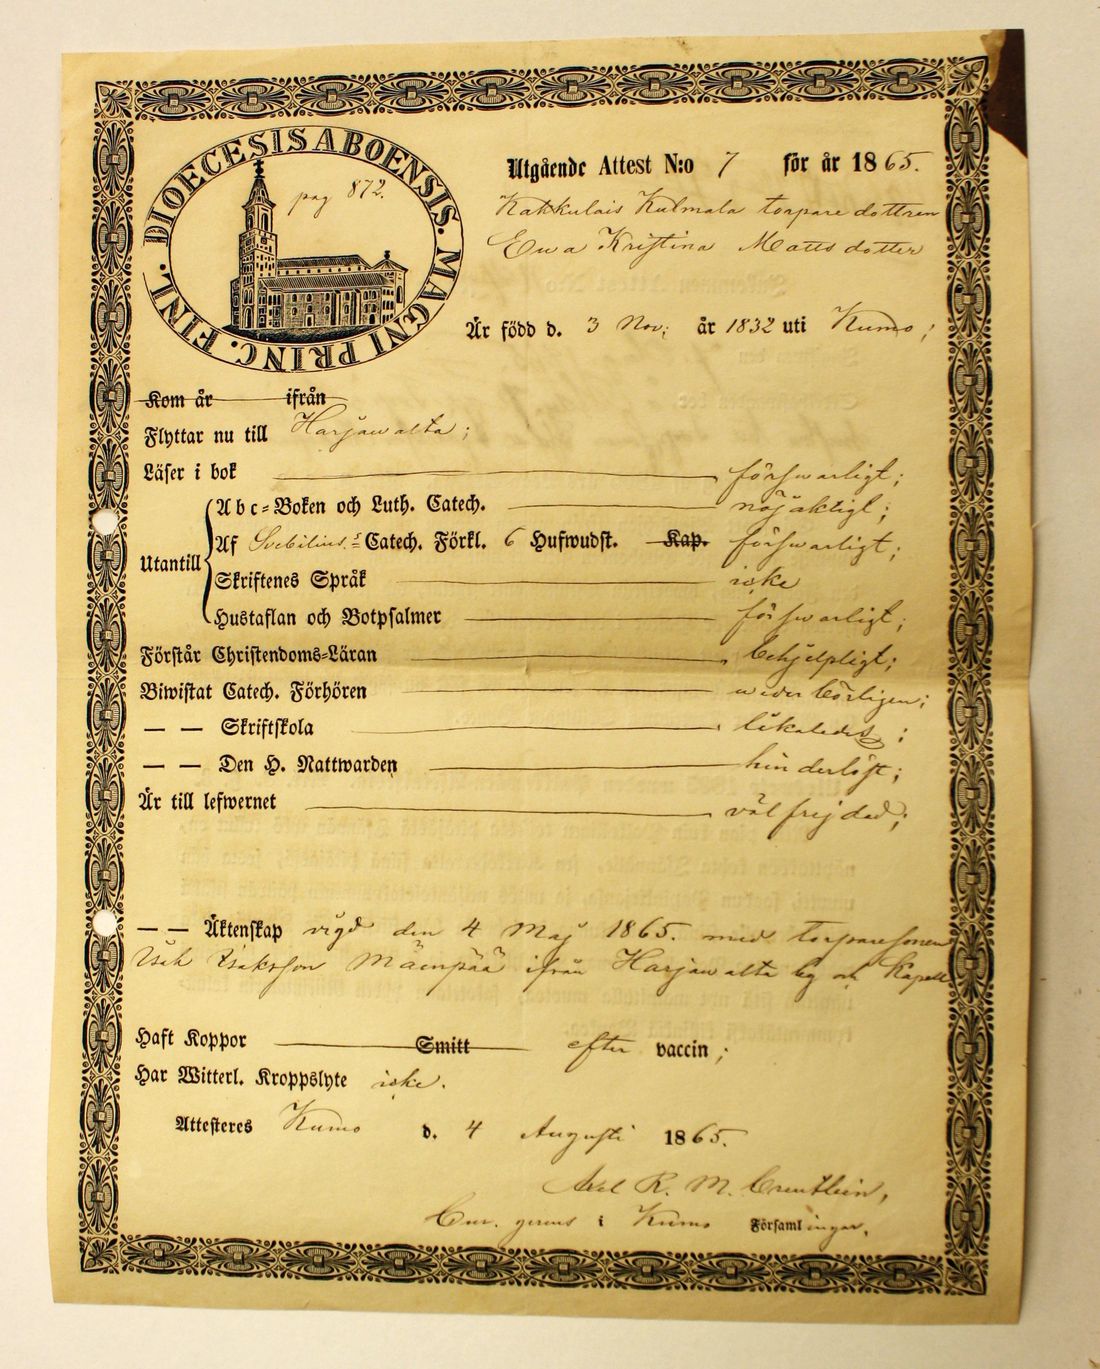 DIOECESIS ABOENSIS. MAGNI PRINC. FINL.
pag 872.
Utgående Attest N:o 7 för år 1865.
Kakkulais Kulmala torpare dottren
Ewa Kristina Matts dotter
Är född d. 3 Nov; år 1832 uti Kumo;
Kom år ifrån
Flyttar nu till Harjawalta;
Läser i bok förswarligt;
Abc-Boken och Luth. Catech. nöjaktigt;
Utantill
Af Svebilius. s Catech. Förkl. 6 Hufwudst. Kap. förswarligt;
Skriftenes Språk icke
Hustaflan och Botpsalmer förswarligt;
Förstår Christendoms-Läran behjelpligt;
Biwistat Catech. Förhören wederbörligen;
— — Skriftskola likaledes;
— — Den H. Nattwarden hinderlöst;
Är till lefwernet välfrejdad;
— — Äktenskap vigd den 4 Maj 1865. med torparesonen
Isak Isaksson Mäenpää ifrån Harjawalta by och Kapell
Haft Koppor Smitt efter vaccin;
Har Witterl. Kroppslyte icke.
Attesteres Kumo d. 4 Augusti 1865.
Axel R. M. Creutlein,
Cur. gerens i Kumo Församlingar.